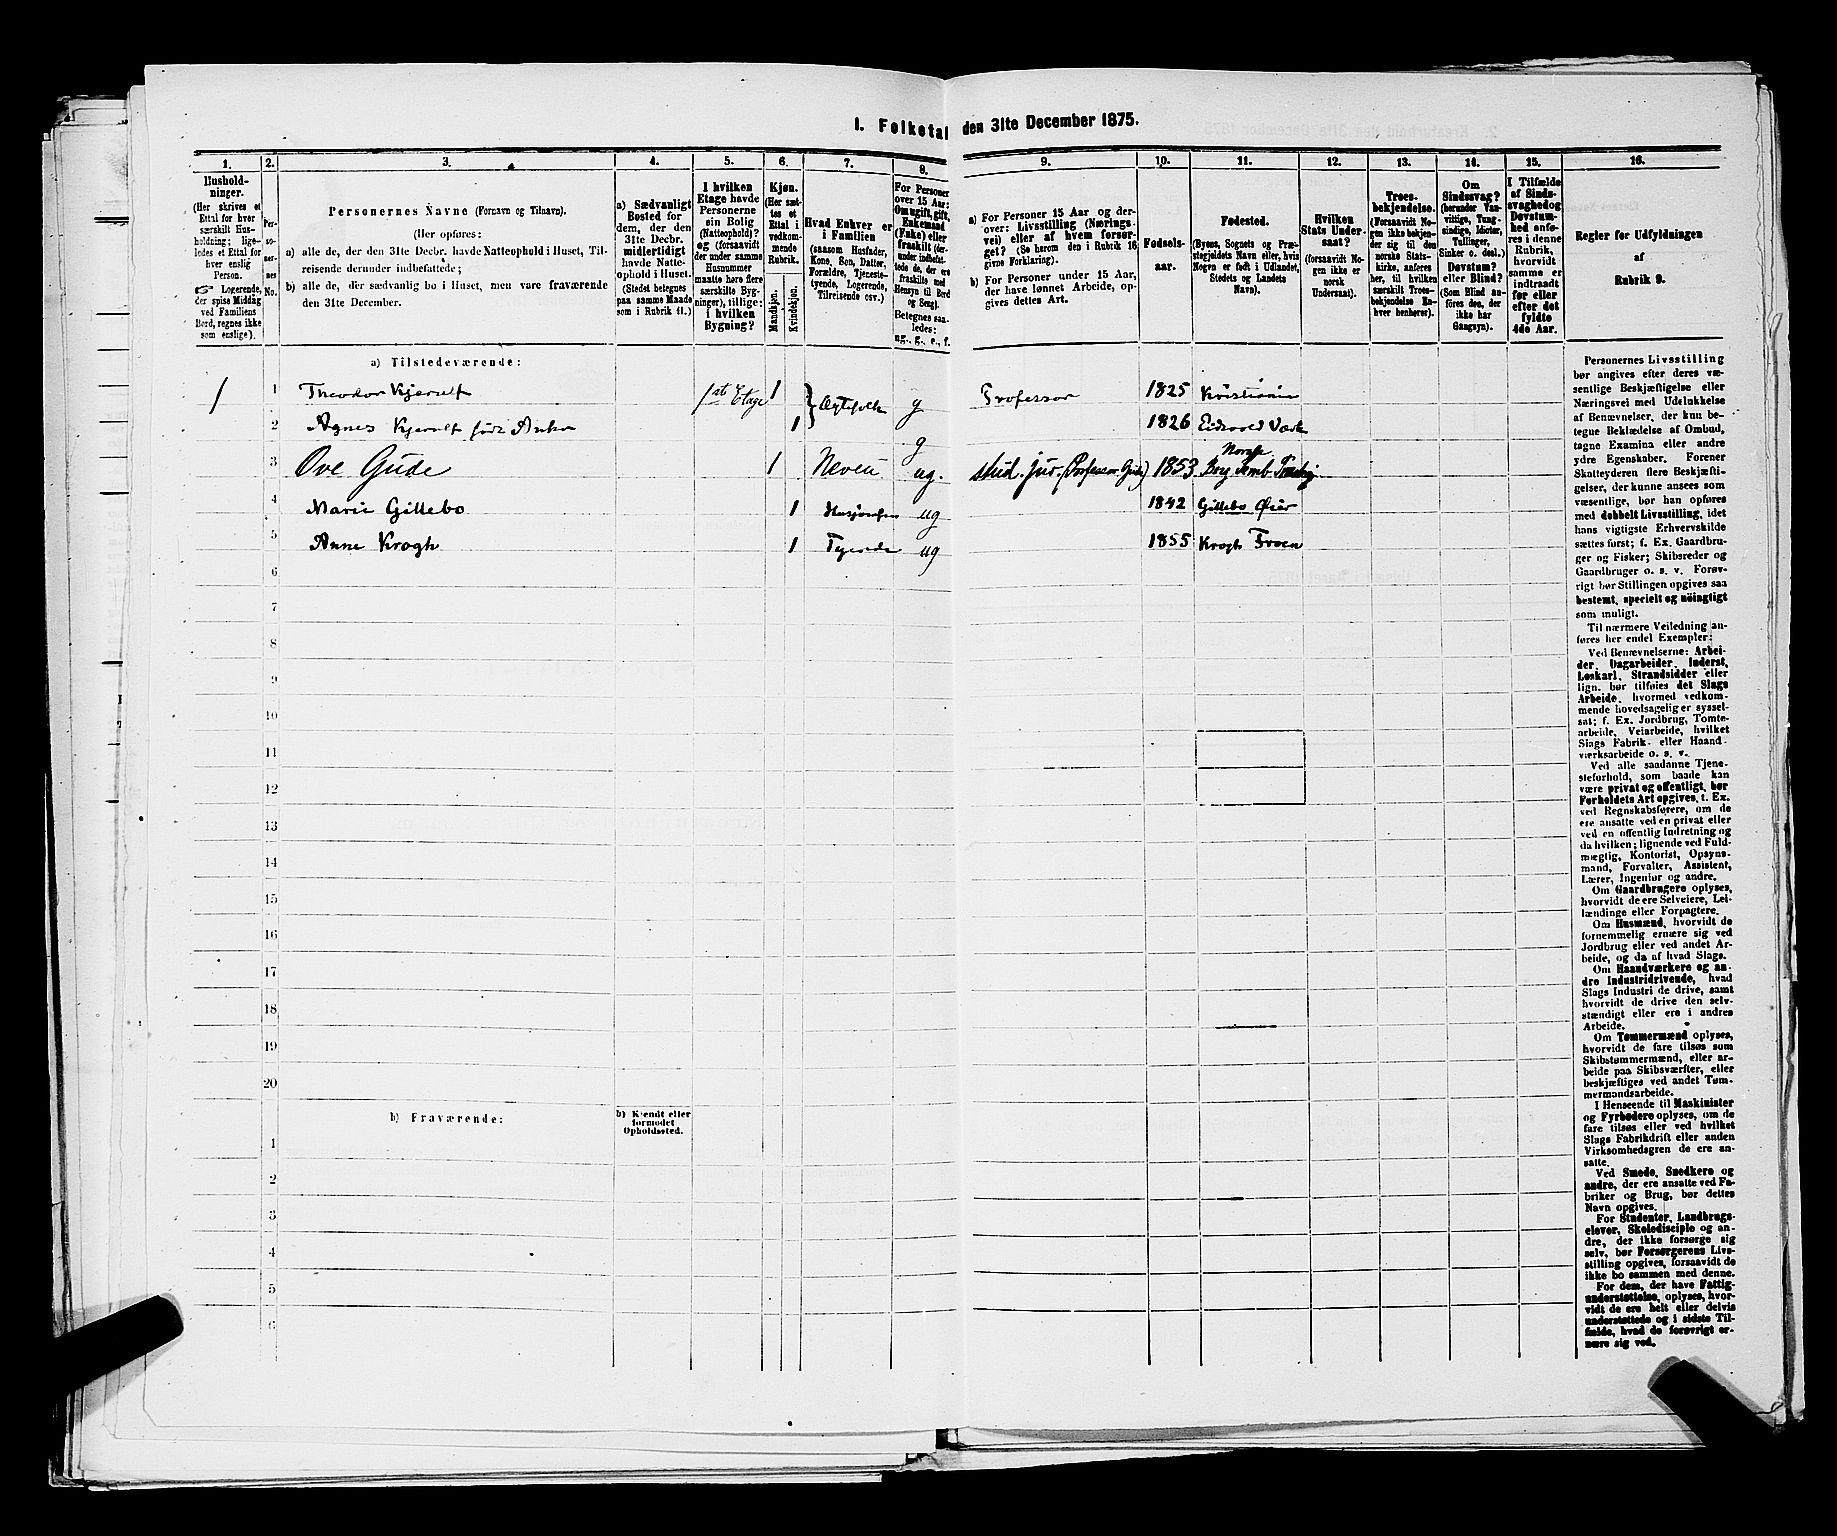 1. Folketal den 31te December 1875.
1. 2. 3. 4. 5. 6. 7. 8. 9. 10. 11. 12. 13. 14. 15. 16.
Hushold-
ninger.
(Her skrives et
Ettal for hver
særskilt Hus-
holdning; lige-
ledes et Ettal for
hver enslig
Person.
☞ Logerende,
der spise Middag
ved Familiens
Bord, regnes ikke
som enslige).
Per-
so-
ner-
nes
No.
Personernes Navne (Fornavn og Tilnavn).
(Her opføres:
a) alle de, der den 31te Decbr. havde Natteophold i Huset, Til-
reisende derunder indbefattede;
b) alle de, der sædvanlig bo i Huset, men vare fraværende
den 31te December.
a) Sædvanligt
Bosted for
dem, der den
31te Decbr.
midlertidigt
havde Natte-
ophold i Huset.
(Stedet betegnes
paa samme Maade
som i Rubrik 11.)
I hvilken
Etage havde
Personerne
sin Bolig
(Natteophold)?
og (forsaavidt
der under samme
Husnummer
maatte høre flere
særskilte Byg-
ninger), tillige:
i hvilken
Bygning?
Kjøn.
(Her sæt-
tes et
Ettal i
vedkom-
mende
Rubrik.)
Mandkjøn.
Kvindekjøn.
Hvad Enhver er
i Familien
(saasom Husfader,
Kone, Søn, Datter,
Forældre, Tjeneste-
tyende, Logerende,
Tilreisende osv.)
For Personer
over 15 Aar:
Om ugift, gift,
Enkemand
(Enke) eller
fraskilt (der-
under indbefat-
tede de, der ere
fraskilte med
Hensyn til Bord
og Seng).
Betegnes saa-
ledes:
ug., g., e., f.
a) For Personer 15 Aar og der-
over: Livsstilling (Nærings-
vei) eller af hvem forsør-
get? (Se herom den i Rubrik 16
givne Forklaring).
b) For Personer under 15 Aar,
der have lønnet Arbeide, op-
gives dettes Art.
Fødsels-
aar.
Fødested.
(Byens, Sognets og Præ-
stegjeldets Navn eller, hvis
Nogen er født i Udlandet,
Stedets og Landets
Navn).
Hvilken
Stats Under-
saat?
(forsaavidt No-
gen ikke er
norsk
Undersaat).
Troes-
bekjendelse.
(Forsaavidt No-
gen ikke bekjen-
der sig til den
norske Stats-
kirke, anføres
her, til hvilken
særskilt Troes-
bekjendelse En-
hver henhører).
Om
Sindssvag?
(herunder Van-
vittige, Tung-
sindige, Idioter,
Tullinger,
Sinker o. desl.)
Døvstum?
eller Blind?
(Som Blind an-
føres den, der
ikke har
Gangsyn).
I Tilfælde
af Sinds-
svaghed og
Døvstum-
hed anfø-
res i denne
Rubrik,
hvorvidt
samme er
indtraadt
før eller
efter det
fyldte
4de Aar.
Regler for Udfyldningen
af
Rubrik 9.
a) Tilstedeværende:
1 1 Theodor Kjerulf 1ste Etage 1 Ægtefolk g Professor 1825 Kristiania
2 Agnes Kjerulf født Anker 1 g 1826 Eidsvold Værk
3 Ove Gude 1 Neveu ug. stud. jur. (Professor Gude) 1853 Norge
4 Marie Gillebo 1 ug 1842 Gillebo Øier
5 Anne Krogh 1 Tyende ug 1855 Krogh Froen
6
7
8
9
10
11
12
13
14
15
16
17
18
19
20
b) Fraværende:
b) Kjendt eller
formodet
Opholdssted.
1
2
3
4
5
6
Personernes Livsstilling
bør angives efter deres væ-
sentlige Beskjæftigelse eller
Næringsvei med Udelukkelse
af Benævnelser, der kun be-
tegne Beklædelse af Ombud,
tagne Examina eller andre
ydre Egenskaber. Forener
Skatteyderen flere Beskjæfti-
gelser, der kunne ansees som
væsentlige, bør han opføres
med dobbelt Livsstilling, idet
hans vigtigste Erhvervskilde
sættes først; f. Ex. Gaardbru-
ger og Fisker; Skibsreder og
Gaardbruger o. s. v. Forøv-
rigt bør Stillingen opgives saa
bestemt, specielt og nøiagtigt
som muligt.
Til nærmere Veiledning an-
føres her endel Exempler:
Ved Benævnelserne: Arbei-
der, Dagarbeider, Inderst,
Løskarl, Strandsidder eller
lign. bør tilføies det Slags
Arbeide, hvormed vedkom-
mende hovedsagelig er syssel-
sat; f. Ex. Jordbrug, Tomte-
arbeide, Veiarbeide, hvilket
Slags Fabrik- eller Haand-
værksarbeide o. s. v.
Ved alle saadanne Tjene-
steforhold, som baade kan
være privat og offentligt, bør
Forholdets Art opgives, t. Ex.
ved Regnskabsførere, om de
ere ansatte ved en privat eller
ved en offentlig Indretning og
da hvilken; lignende ved Fuld-
mægtig, Kontorist, Opsyns-
mand, Forvalter, Assistent,
Lærer, Ingeniør og andre.
Om Gaardbrugere oplyses,
hvorvidt de ere Selveiere, Lei-
lændinge eller Forpagtere.
Om Husmænd, hvorvidt de
fornemmelig ernære sig ved
Jordbrug eller ved andet Ar-
beide, og da af hvad Slags.
Om Haandværkere og an-
dre Industridrivende, hvad
Slags Industri de drive, samt
hvorvidt de drive den selv-
stændigt eller ere i andres
Arbeide.
Om Tømmermænd oplyses,
hvorvidt de fare tilsøs som
Skibstømmermænd, eller ar-
beide paa Skibsværfter, eller
beskjæftiges ved andet Tøm-
mermandsarbeide.
I Henseende til Maskinister
og Fyrbødere oplyses, om de
fare tilsøs eller ved hvilket
Slags Fabrikdrift eller anden
Virksomhedsgren de ere an-
satte.
Ved Smede, Snedkere og
andre, der ere ansatte ved Fa-
briker og Brug, bør dettes
Navn opgives.
For Studenter, Landbrugs-
elever, Skoledisciple og an-
dre, der ikke forsørge sig
selv, bør Forsørgerens Livs-
stilling opgives, forsaavidt de
ikke bo sammen med denne.
For dem, der have Fattig-
understøttelse, oplyses, hvor-
vidt de ere helt eller delvis
understøttede og i sidste Til-
fælde, hvad de forøvrigt er-
nære sig ved.